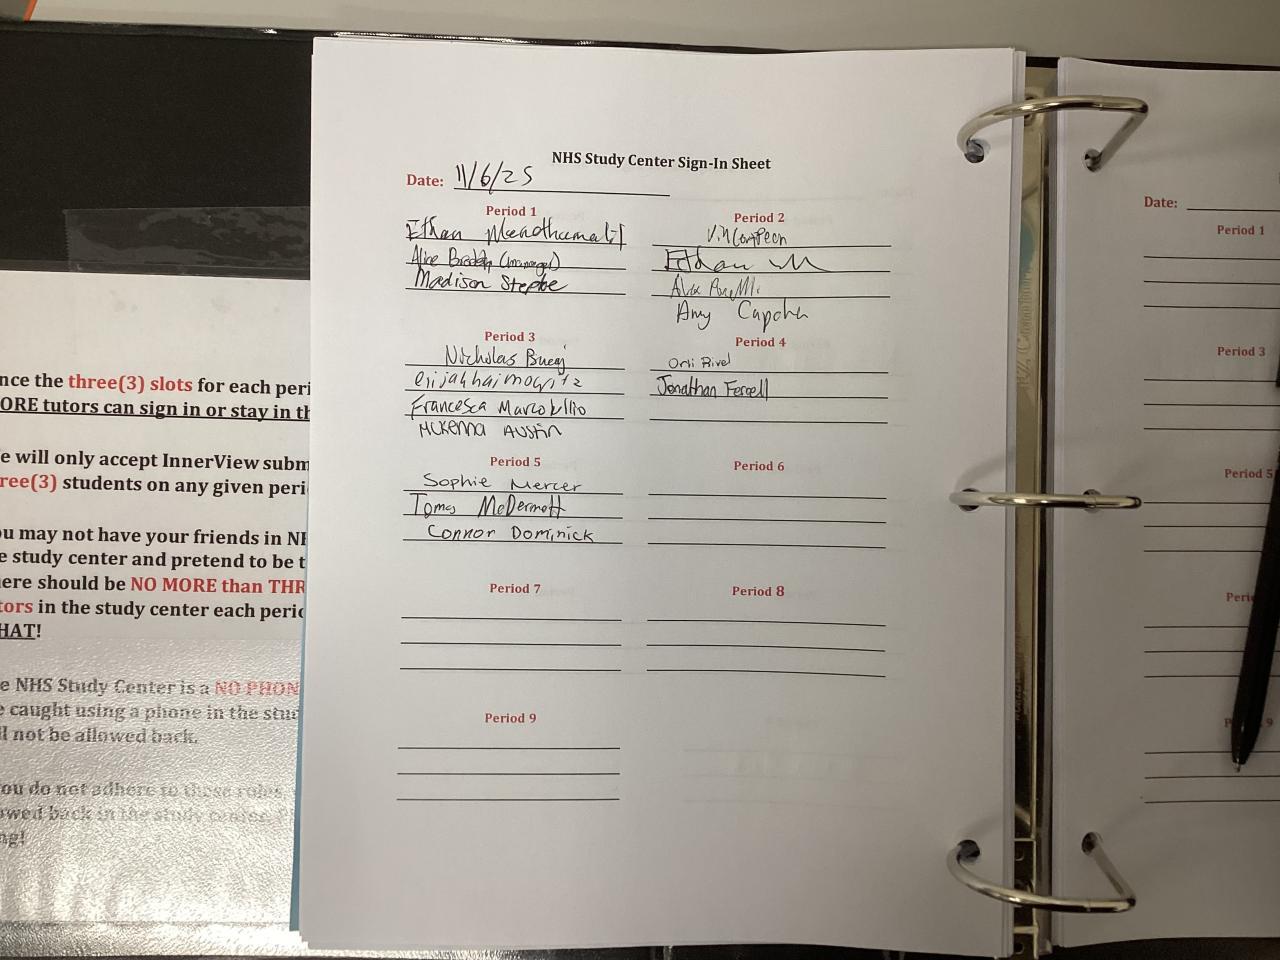 NHS Study Center Sign-In Sheet
Date: 11/6/25
Period 1
Ethan
Aline (manager)
Madison
Period 2
Ethan M
Amy Capcha
Period 3
Nicholas
elijahhaimowitz
Francesca
McKenna Austin
Period 4
Orli
Jonathan
Period 5
Sophie Mercer
Tomas McDermott
Connor Dominick
Period 6
Period 7
Period 8
Period 9
nce the three(3) slots for each peri
ORE tutors can sign in or stay in th
e will only accept InnerView subm
ree(3) students on any given peri
ou may not have your friends in NH
e study center and pretend to be t
ere should be NO MORE than THR
tors in the study center each peric
HAT!
e NHS Study Center is a NO PHON
e caught using a phone in the stud
ll not be allowed back.
ou do not adhere to these rules
owed back in the study center.
ng!
Date:
Period 1
Period 3
Period 5
Peri
P 9